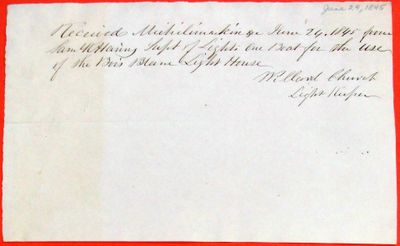 June 24, 1845
Received Michilimackinac June 24, 1845 from
Sam K Haring Supt of Lights One Boat for the use
of the Bois Blanc Light House
Willard Church
Light Keeper